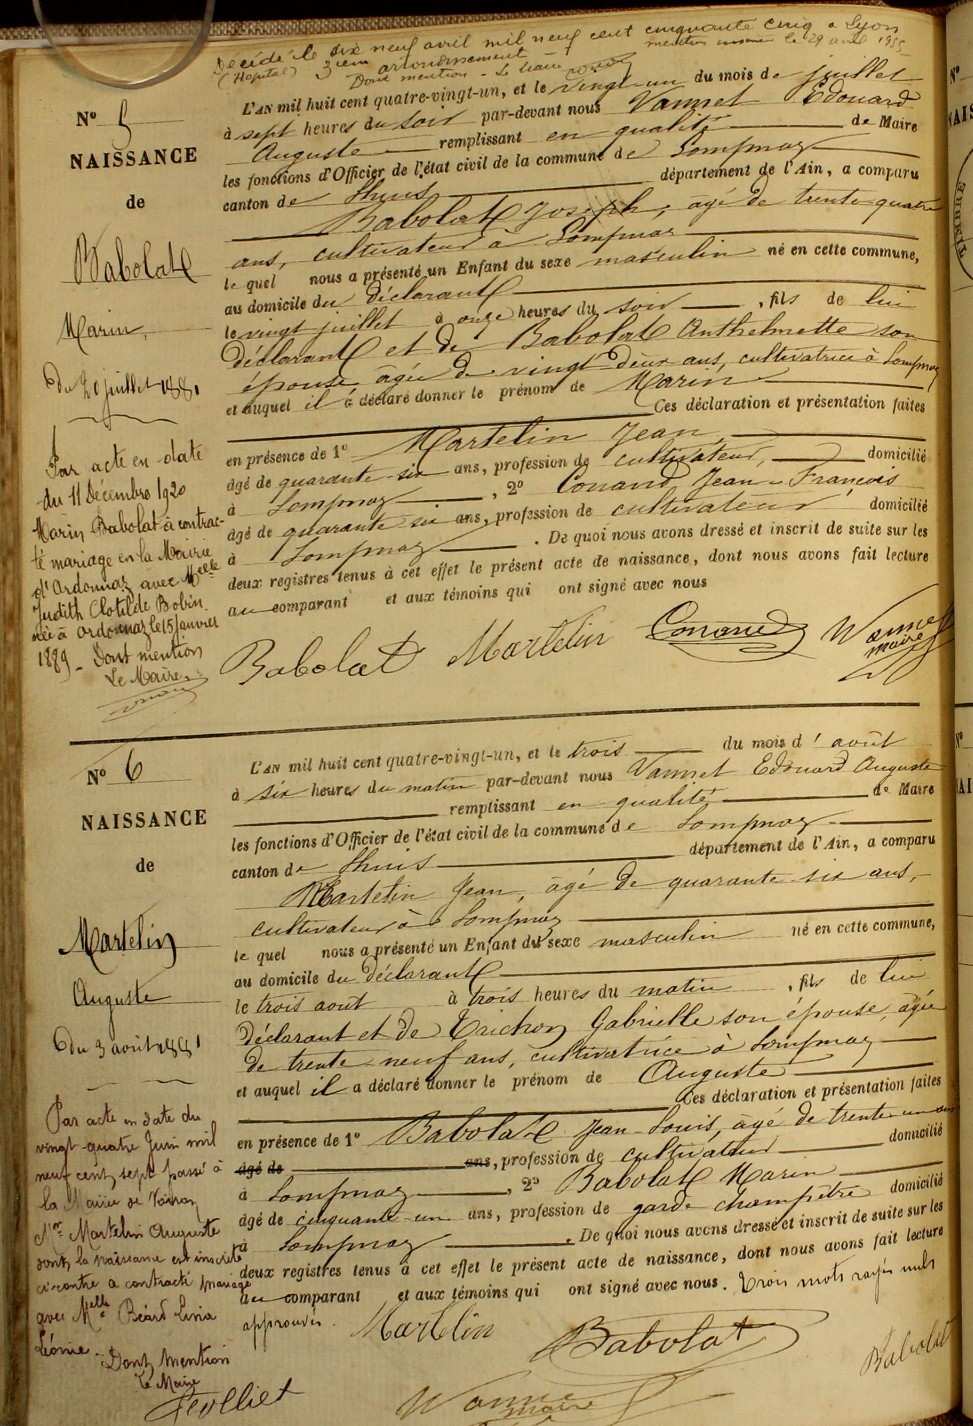 Décédé le dix neuf avril mil neuf cent cinquante cinq à Lyon
(Hôpital) 3ième arrondissement mention le 29 avril 1955
Dont mention - Le
N° 5
NAISSANCE
de
Babolat
Marin,
Du 20 juillet 1881
Par acte en date
du 11 Décembre 1920
Marin Babolat à contrac-
té mariage en la Mairie
d'Ordonnaz avec Melle
Judith Clotilde Bobin
née à Ordonnaz le 15 Janvier
1889 - Dont mention
Le Maire
L'AN mil huit cent quatre-vingt-un, et le vingt-un du mois de juillet
à sept heures du soir par-devant nous Vannet Edouard
Auguste remplissant en qualité de Maire
les fonctions d'Officier de l'état civil de la commune de Lompnaz
canton de Lhuis département de l'Ain, a comparu
Babolat Joseph, agé de trente quatre
ans, cultivateur à Lompnaz
le quel nous a présenté un Enfant du sexe masculin né en cette commune,
au domicile du déclarant
le vingt juillet à onze heures du soir, fils de lui
déclarant et de Babolat Anthelmette son
épouse âgée de vingt-deux ans, cultivatrice à Lompnaz
et auquel il a déclaré donner le prénom de Marin
Ces déclaration et présentation faites
en présence de 1° Martelin Jean,
âgé de quarante-six ans, profession de cultivateur, domicilié
à Lompnaz, 2° Conand, Jean-François
âgé de quarante six ans, profession de cultivateur domicilié
à Lompnaz. De quoi nous avons dressé et inscrit de suite sur les
deux registres tenus à cet effet le présent acte de naissance, dont nous avons fait lecture
au comparant et aux témoins qui ont signé avec nous
Babolat Martelin Conand Vannet
maire
N° 6
NAISSANCE
de
Martelin
Auguste
du 3 août 1881
Par acte en date du
vingt-quatre Juin mil
neuf cent sept passé à
la Mairie de Voiron
Mr Martelin Auguste
dont la naissance est inscrite
ci-contre a contracté mariage
avec Melle Béard Livia
Léonie. Dont mention
Le Maire
L'AN mil huit cent quatre-vingt-un, et le trois du mois d'août
à six heures du matin par-devant nous Vannet Edouard Auguste
remplissant en qualité de Maire
les fonctions d'Officier de l'état civil de la commune de Lompnaz
canton de Lhuis département de l'Ain, a comparu
Martelin Jean, âgé de quarante-six ans,
cultivateur à Lompnaz
le quel nous a présenté un Enfant du sexe masculin né en cette commune,
au domicile du déclarant
le trois août à trois heures du matin, fils de lui
déclarant et de Trichon Gabrielle son épouse, âgée
de trente-neuf ans, cultivatrice à Lompnaz
et auquel il a déclaré donner le prénom de Auguste
Ces déclaration et présentation faites
en présence de 1° Babolat Jean-Louis, âgé de trente-un ans
âgé de ans, profession de cultivateur domicilié
à Lompnaz, 2° Babolat Marin
âgé de cinquante-un ans, profession de garde champêtre domicilié
à Lompnaz. De quoi nous avons dressé et inscrit de suite sur les
deux registres tenus à cet effet le présent acte de naissance, dont nous avons fait lecture
au comparant et aux témoins qui ont signé avec nous. Trois mots rayés nuls
approuvés. Martelin
Babolat Babolat
Vannet
maire